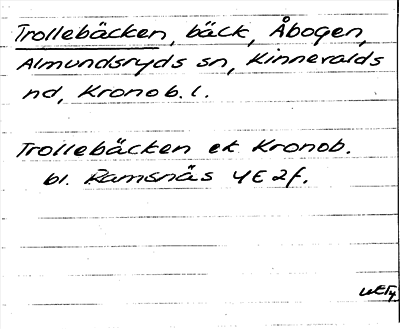 Trollebäcken, bäck, Åbogen,
Almundsryds sn, Kinnevalds
hd, Kronob. l.
Trollebäcken ek Kronob.
bl. Ramsnäs 4E2f.